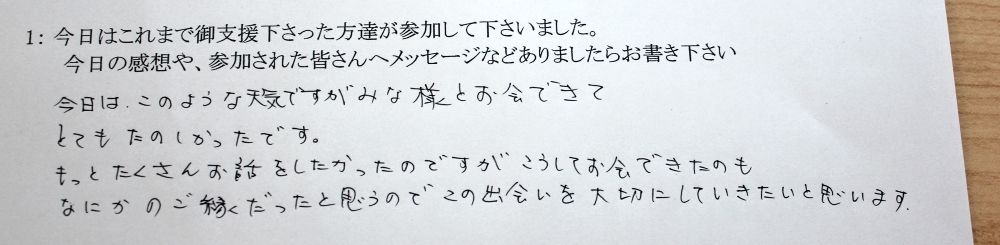 1: 今日はこれまで御支援下さった方達が参加して下さいました。
今日の感想や、参加された皆さんへメッセージなどありましたらお書き下さい
今日は、このような天気ですがみな様とお会できて
とても たのしかったです。
もっと たくさん お話をしたかったのですが こうしてお会できたのも
なにかのご縁だったと思うので この出会いを大切にしていきたいと思います.